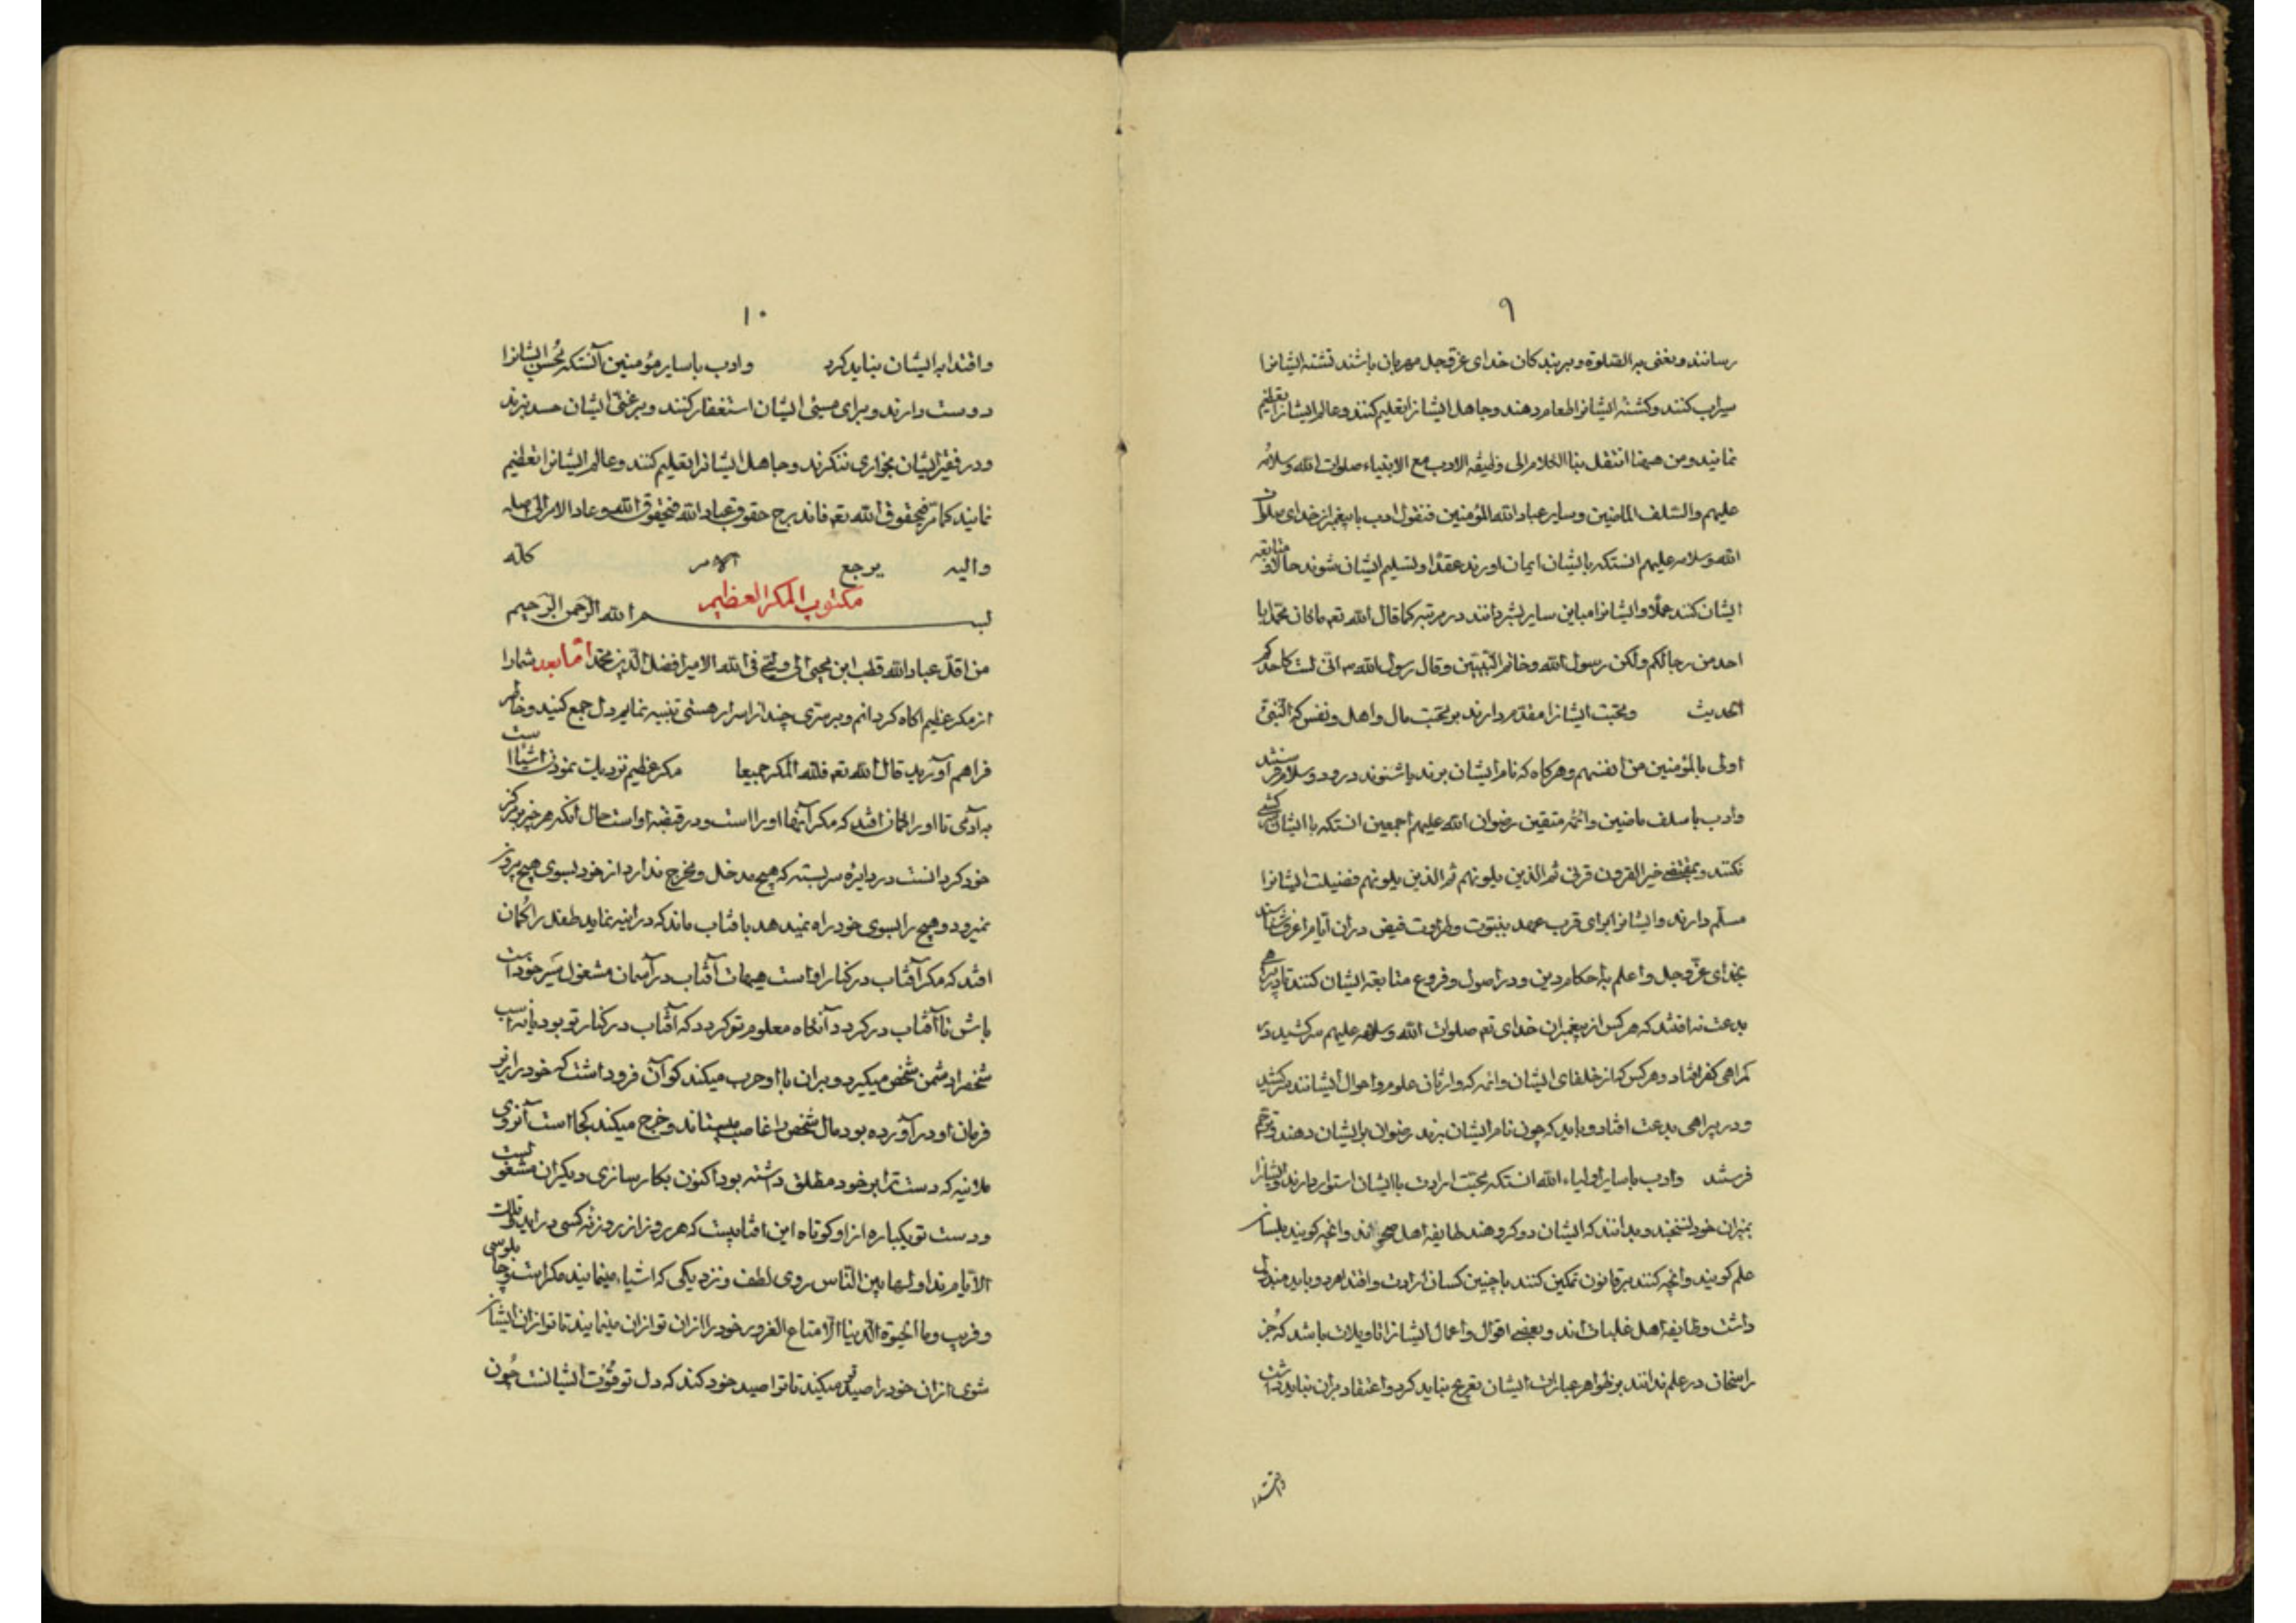 ۹
رسانند و نعنی به الصلوة و بر بندکان خدای عزوجل مهربان باشند تشنه ایشانرا
سیراب کنند و کشنه ایشانرا طعام دهند و جاهل ایشانرا تعلیم کنند و عالم ایشانرا تعظیم
نمایند و من ههنا انتقل بنا الکلام الی وظیفه الادب مع الانبیاء صلوات الله وسلامه
علیهم والسلف الماضین وسایر عباد الله المؤمنین فنقول ادب با پیغمبران خدای صلوات
الله وسلامه علیهم انستکه بایشان ایمان اورند عقدا و تسلیم ایشان شوند حالا و متابعه
ایشان کنند عملا و ایشانرا مباین سایر بشر دانند در مرتبه کما قال الله تع ما کان محمد ابا
احد من رجالکم ولکن رسول الله وخاتم النبیین وقال رسول الله ص انی لست کاحدکم
الحدیث و محبت ایشانرا مقدم دارند بر محبت مال و اهل و نفس که النبی
اولی بالمؤمنین من انفسهم و هرکاه که نام ایشان برند یا شنوند درود و سلام فرستند
وادب با سلف ماضین وائمه متقین رضوان الله علیهم اجمعین انستکه با ایشان
نکنند و بمقتضی خیر القرون قرنی ثم الذین یلونهم ثم الذین یلونهم فضیلت ایشانرا
مسلم دارند و ایشانرا برای قرب عهد بنبوت و طراوت فیض دران ایام اعرف شناسند
بخدای عزوجل و اعلم باحکام دین و در اصول و فروع متابعه ایشان کنند تا در بیراهی
بدعت نه افتند که هر کس از پیغمبران خدای تع صلوات الله وسلامه علیهم سر کشید در
کمراهی کفر افتاد و هر کس که از خلفای ایشان وائمه که وارثان علوم و احوال ایشانند سر کشید
و در بیراهی بدعت افتاد و باید که چون نام ایشان برند رضوان بر ایشان دهند و ترحم
فرستند وادب با سایر اولیاء الله انستکه محبت ارادت با ایشان استوار دارند و ایشانرا
بمیزان خود نسنجند و بدانند که ایشان دو کروهند طایفه اهل صحو اند وانچه کویند بلسان
علم کویند وانچه کنند بر قانون تمکین کنند با چنین کسان ارادت و اقتدا هر دو باید مبذول
داشت و طایفه اهل غلبات اند و بعضی اقوال و اعمال ایشانرا تاویلات باشد که جز
راسخان در علم ندانند بر ظواهر عبارات ایشان تفریع نباید کرد و اعتقاد بران نباید داشت
۱۰
و اقتدا به ایشان نباید کرد وادب با سایر مؤمنین آنستکه محسن ایشانرا
دوست دارند و برای مسیئ ایشان استغفار کنند و بر غنی ایشان حسد نبرند
و در فقیر ایشان بخواری ننکرند و جاهل ایشانرا تعلیم کنند و عالم ایشانرا تعظیم
نمایند کما مر فی حقوق الله تع فاندرج حقوق عباد الله فی حقوق الله وعاد الامر الی اصله
والیه یرجع الامر کله
مکتوب المکر العظیم
بسم الله الرحمن الرحیم
من اقل عباد الله قطب ابن محیی الی ولیی فی الله الامیر افضل الدین محمد اما بعد شما را
از مکر عظیم اکاه کردانم و بر سری چند از اسرار هستی تنبیه نمایم دل جمع کنید و خاطر
فراهم آورید قال الله تع فلله المکر جمیعا مکر عظیم نزدیک نمودن اشیااست
به آدمی تا او را کمان افتد که مکر آنها او را است و در قبضه او است حال انکه هر چیز بر مرکز
خود کردانست در دایره سربسته که هیچ مدخل و مخرج ندارد از خود بسوی هیچ بیرون
نمیرود و هیچ را بسوی خود راه نمیدهد بافتاب ماند که در اینه نماید طفل را کمان
افتد که مکر آفتاب در کنار او است هیهات آفتاب در آسمان مشغول سیر خود است
باش تا آفتاب درکردد آنکاه معلوم تو کردد که آفتاب در کنار تو بود یا نه اسب
شخص را دشمن شخص میکیرد و بران با او حرب میکند کو آن فروداشت که خود را زیر
فرمان او در آورده بود مال شخص را غاصب میستاند و خرج میکند کجا است آنروی
علانیه که دست ترا بر خود مطلق داشته بود اکنون بکار سازی دیکران مشغولست
و دست تو یکباره از او کوتاه این افتابیست که هر روز از روزنه کسی در اید و تلک
الایام نداولها بین الناس روی لطف و نزدیکی که اشیاء مینمایند مکر است و چاپلوسی
و فریب وما الحیوة الدنیا الا متاع الغرور خود را ازان تو ازان مینمایند تا تو ازان ایشان
شوی ازان خود را صید تو میکنند تا تو را صید خود کنند که دل تو قوت ایشانست چون